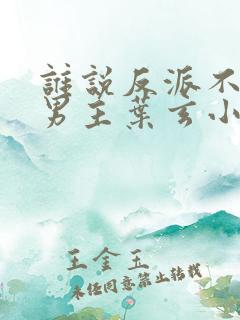 誰說反派不
男主葉玄小
王金玉
未经同意禁止转载